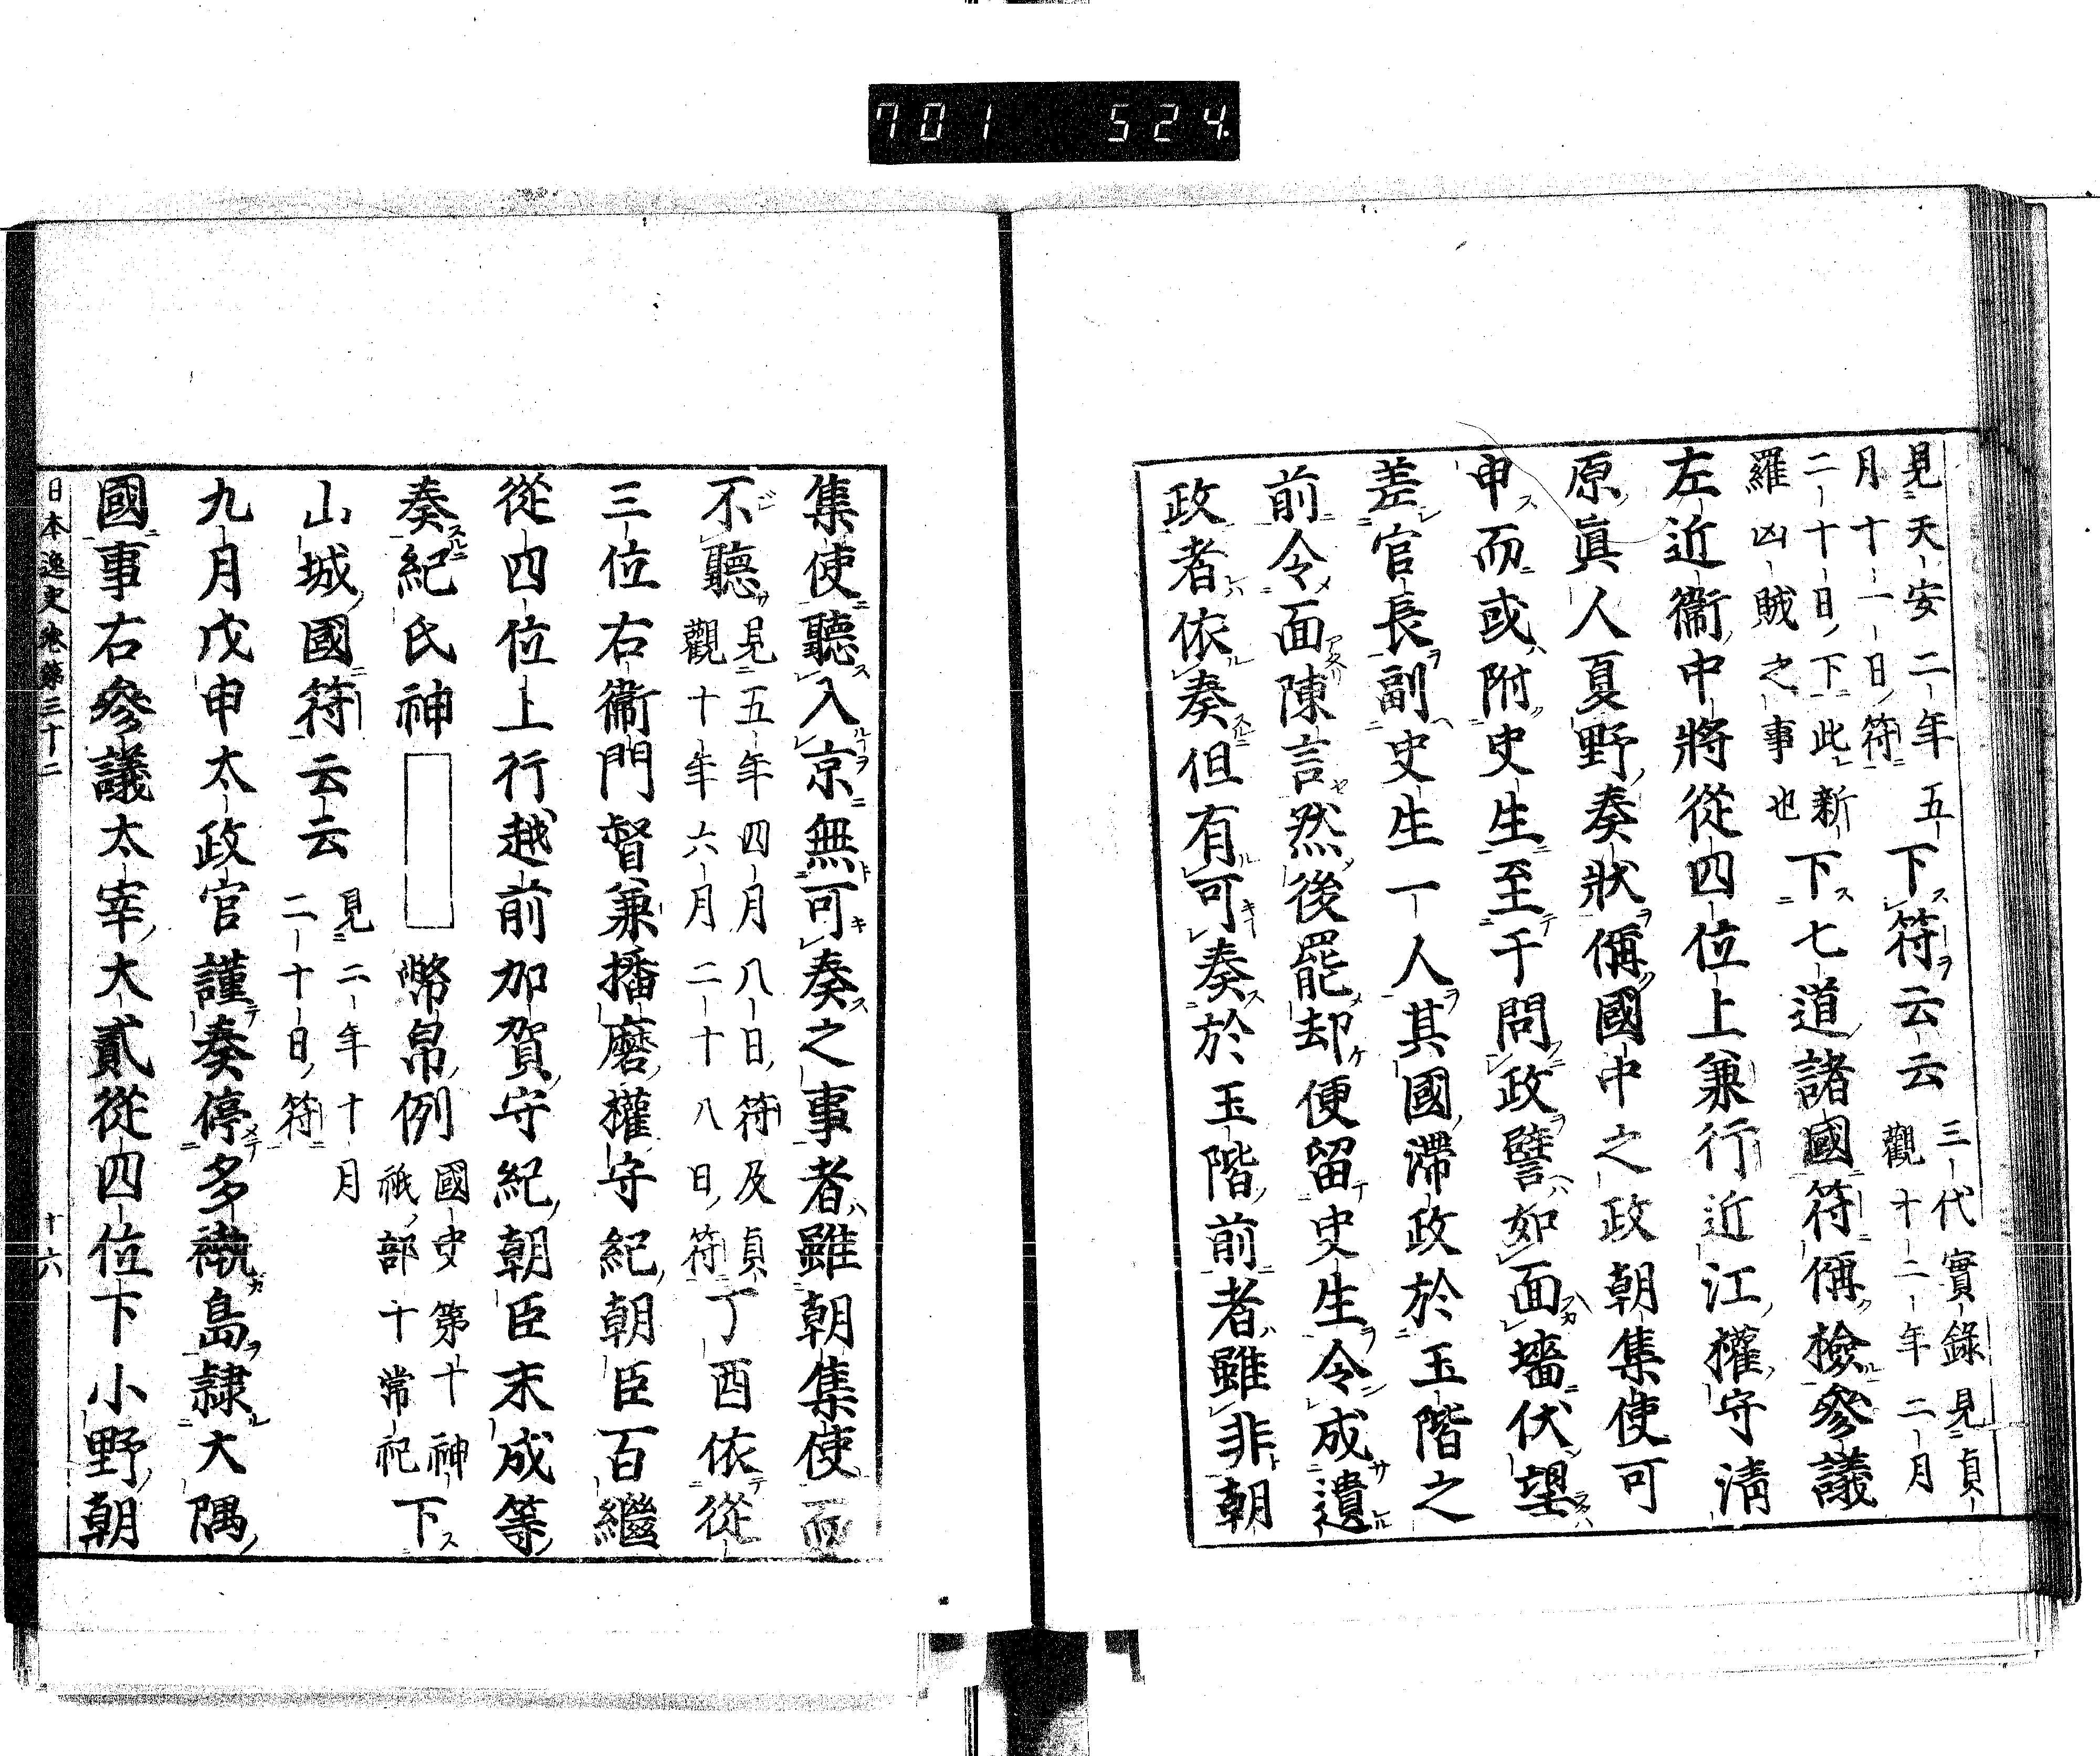 701 524
見天安二年五
月十一日符 下符云云 三代實錄見貞
觀十二年二月
二十日下此新
羅凶賊之事也 下七道諸國符偁檢參議
左近衞中將從四位上兼行近江權守淸
原眞人夏野奏狀偁國中之政朝集使可
申而或附史生至于問政譬如面墻伏望
差官長副史生一人其國滯政於玉階之
前令面陳言然後罷却便留史生令成遺
政者依奏但有可奏於玉階前者雖非朝
集使聽入京無可奏之事者雖朝集使而
不聽 見五年四月八日符及貞
觀十年六月二十八日符 丁酉依從
三位右衞門督兼播磨權守紀朝臣百繼
從四位上行越前加賀守紀朝臣末成等
奏紀氏神 幣帛例 國史第十神
祇部十常祀 下
山城國符云云 見二年十月
二十日符
九月戊申太政官謹奏停多褹島隷大隅
國事右參議太宰大貳從四位下小野朝
日本逸史卷第三十二 十六